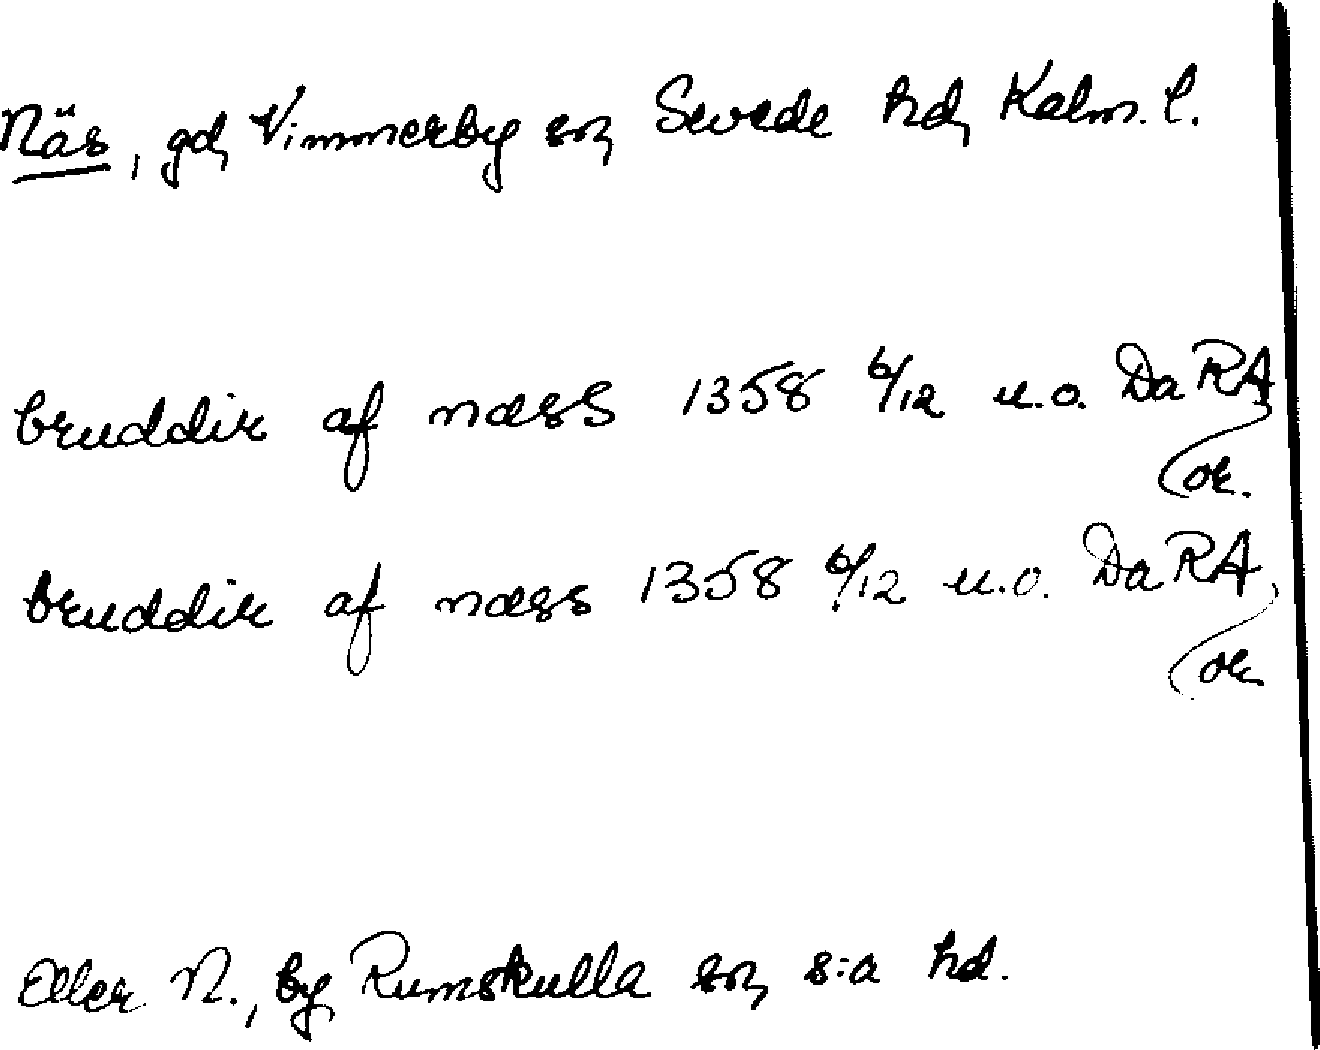 Näs, gd, Vimmerby sn, Sevede hd, Kalm. l.
bruddir af næss 1358 6/12 u.o. Da RA
or.
bruddir af næss 1358 6/12 u.o. Da RA,
or.
Eller N., by Rumskulla sn, s:a hd.